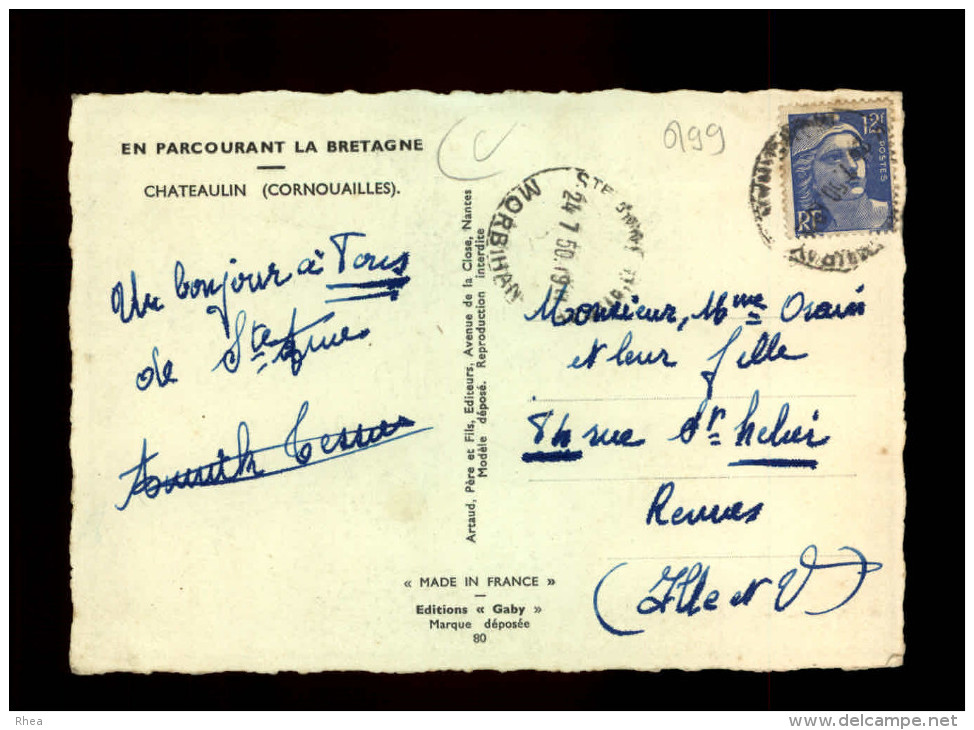 EN PARCOURANT LA BRETAGNE
CHATEAULIN (CORNOUAILLES).
Un bonjour à Tous
de Ste Anne
Annick Tessier
Artaud, Père et Fils, Editeurs, Avenue de la Close, Nantes
Modèle déposé. Reproduction interdite
« MADE IN FRANCE »
Editions « Gaby »
Marque déposée
80
C
0199
12F
POSTES
RF
STE ANNE D'
24 7 50
MORBIHAN
Monsieur, Mme Orain
et leur fille
rue St Helier
Rennes
(Ille et V)
Rhea
www.delcampe.net